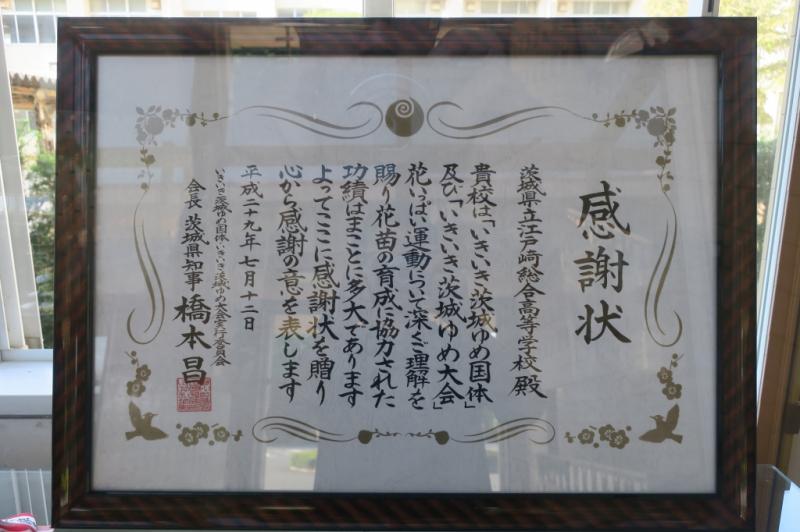 感謝状
茨城県立江戸崎総合高等学校 殿
貴校は「いきいき茨城ゆめ国体」
及び「いきいき茨城ゆめ大会」
花いっぱい運動について深くご理解を
賜り花苗の育成に協力された
功績はまことに多大であります
よってここに感謝状を贈り
心から感謝の意を表します
平成二十九年七月十二日
いきいき茨城ゆめ国体・いきいき茨城ゆめ大会実行委員会
会長 茨城県知事 橋本昌